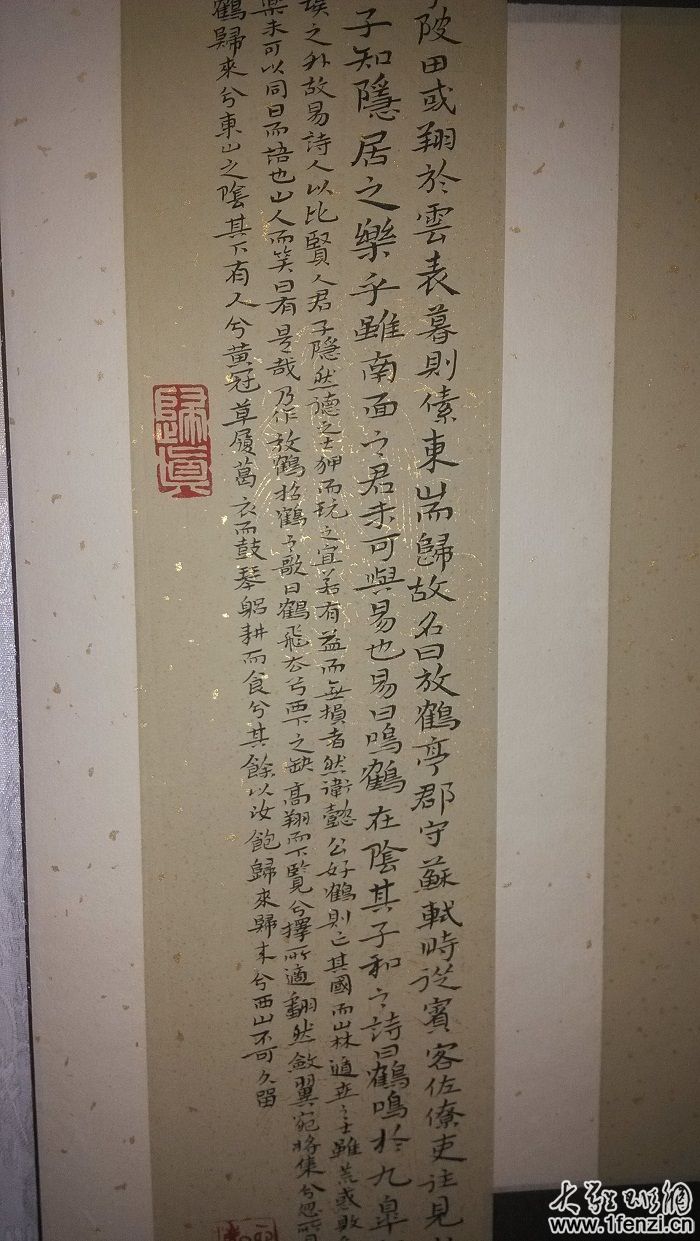 陂田或翔於雲表暮則傃東山而歸故名曰放鶴亭郡守蘇軾時從賓客佐僚吏往見
子知隱居之樂乎雖南面之君未可與易也易曰鳴鶴在陰其子和之詩曰鶴鳴於九皋
埃之外故易詩人以比賢人君子隱然德之士狎而玩之宜若有益而無損者然衛懿公好鶴則亡其國而山林遁世之士雖荒惑敗
樂未可以同日而語也山人而笑曰有是哉乃作放鶴招鶴之歌曰鶴飛去兮西下之缺高翔而下覽兮擇所適翻然斂翼宛將集兮忽所
鶴歸來兮東山之陰其下有人兮黃冠草履葛衣而鼓琴躬耕而食兮其餘以汝飽歸來歸來兮西山不可久留
歸真
www.1fenzi.cn